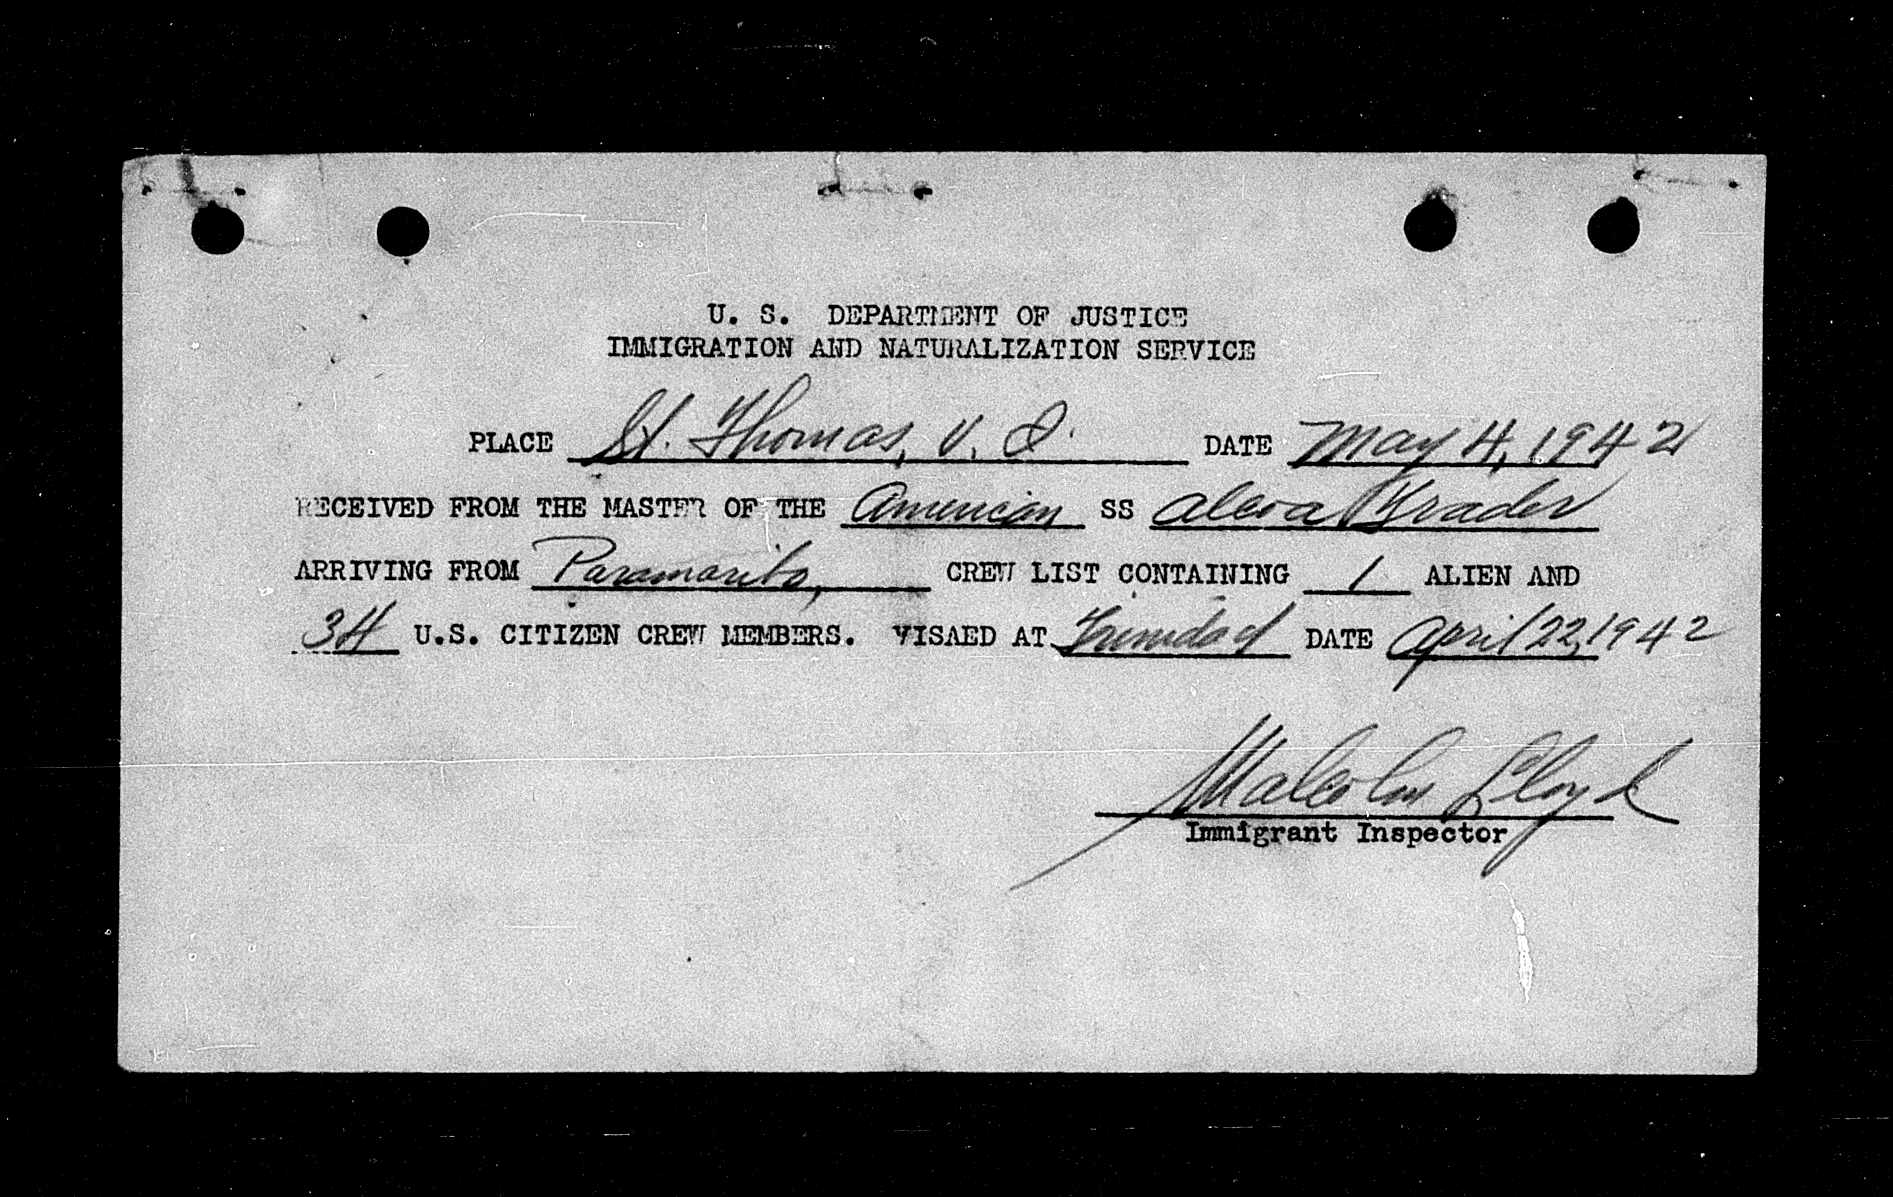 U. S. DEPARTMENT OF JUSTICE
IMMIGRATION AND NATURALIZATION SERVICE
PLACE St. Thomas, V. I. DATE May 4, 1942
RECEIVED FROM THE MASTER OF THE American SS Alcoa
ARRIVING FROM Paramaribo, CREW LIST CONTAINING 1 ALIEN AND
34 U.S. CITIZEN CREW MEMBERS. VISAED AT Trinidad DATE April 22, 1942
Malcolm Lloyd
Immigrant Inspector